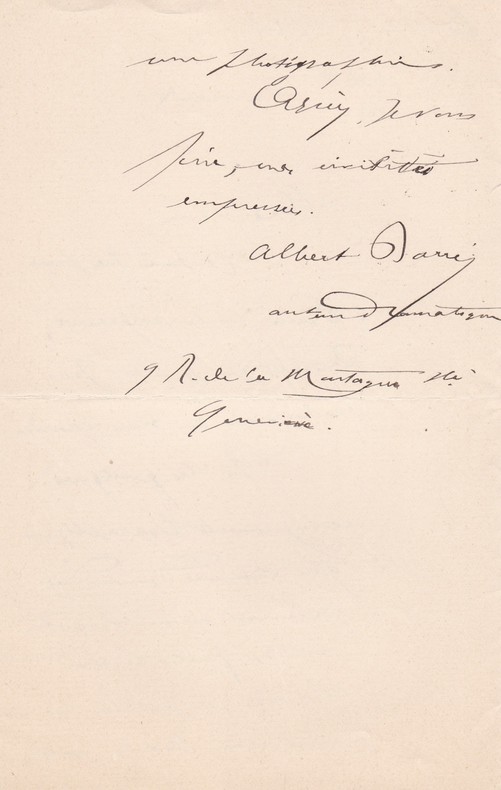 une photographie.
Agréez, je vous
prie, mes civilités
empressées.
Albert Barré
auteur dramatique
9 R. de la Montagne Ste
Geneviève.